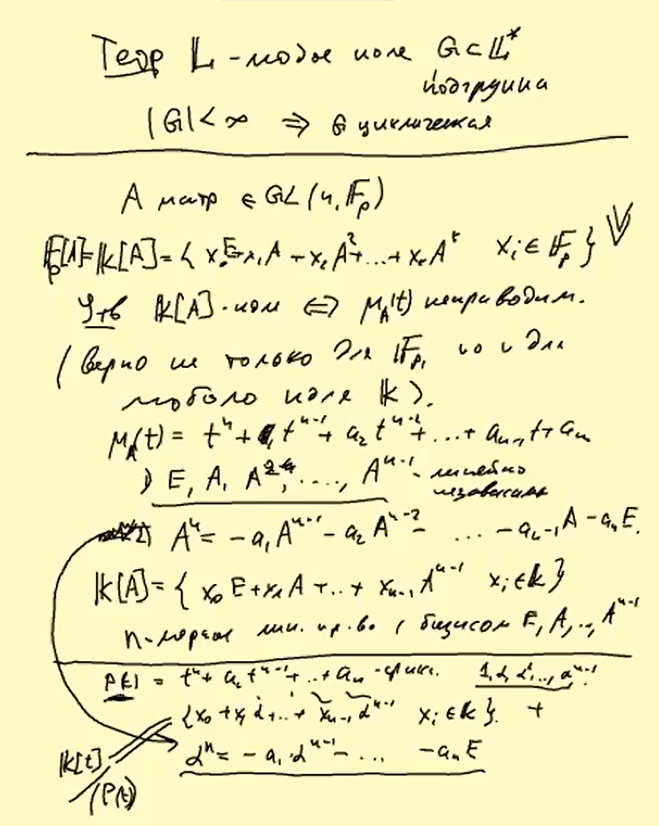 Теор 𝕃 - любое поле G ⊂ 𝕃*
подгруппа
|G| < ∞ ⇒ G циклическая
A матр ∈ GL(n, 𝔽ₚ)
𝔽ₚ[A] = 𝕂[A] = { x₀E + x₁A + x₂A² + ... + xᵣAʳ xᵢ ∈ 𝔽ₚ }
Утв 𝕂[A] - поле ⇔ μ_A(t) неприводим.
(верно не только для 𝔽ₚ, но и для
любого поля 𝕂).
μ_A(t) = tⁿ + a₁tⁿ⁻¹ + a₂tⁿ⁻² + ... + aₙ₋₁t + aₙ
) E, A, A², ..., Aⁿ⁻¹ - линейно
независимы
2) Aⁿ = -a₁Aⁿ⁻¹ - a₂Aⁿ⁻² - ... - aₙ₋₁A - aₙE.
𝕂[A] = { x₀E + x₁A + .. + xₙ₋₁Aⁿ⁻¹ xᵢ ∈ 𝕂 }
n-мерное лин. пр-во с базисом E, A, .., Aⁿ⁻¹
P(t) = tⁿ + a₁tⁿ⁻¹ + .. + aₙ - фикс. 1, α, α², .., αⁿ⁻¹
{ x₀ + x₁α + .. + xₙ₋₁αⁿ⁻¹ xᵢ ∈ 𝕂 }. +
𝕂[t] / (P(t))
αⁿ = -a₁·αⁿ⁻¹ - ... - aₙE